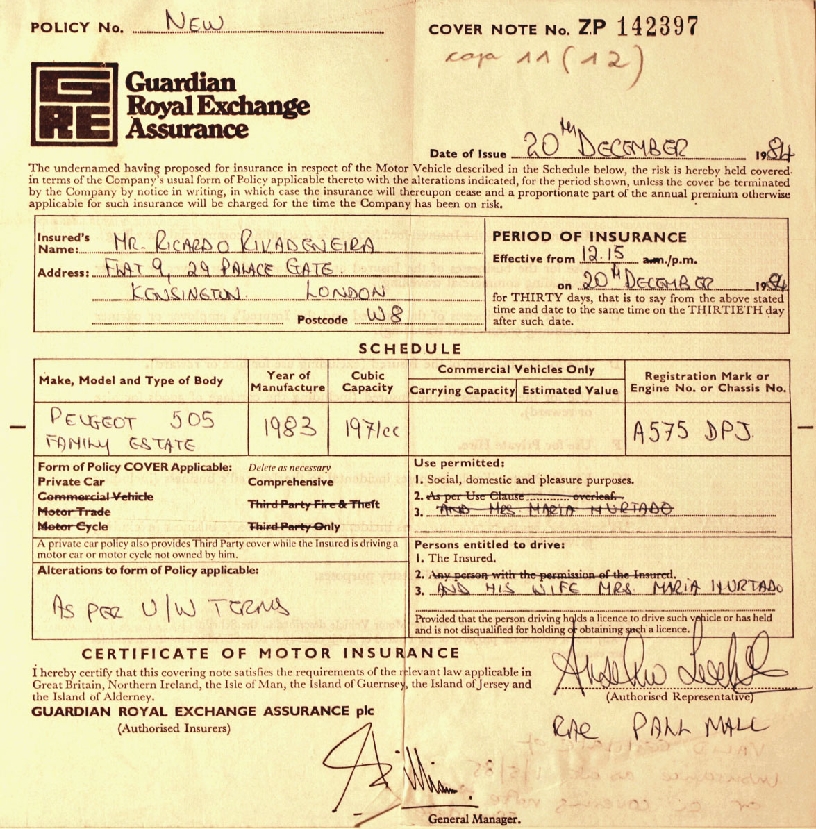 POLICY No. NEW
COVER NOTE No. ZP 142397
caja 11 (12)
GRE
Guardian
Royal Exchange
Assurance
Date of Issue 20TH DECEMBER 1984
The undernamed having proposed for insurance in respect of the Motor Vehicle described in the Schedule below, the risk is hereby held covered
in terms of the Company's usual form of Policy applicable thereto with the alterations indicated, for the period shown, unless the cover be terminated
by the Company by notice in writing, in which case the insurance will thereupon cease and a proportionate part of the annual premium otherwise
applicable for such insurance will be charged for the time the Company has been on risk.
Insured's
Name: MR. RICARDO RIVADENEIRA
Address: FLAT 9, 29 PALACE GATE
KENSINGTON LONDON
Postcode W8
PERIOD OF INSURANCE
Effective from 12.15 a.m./p.m.
on 20TH DECEMBER 1984
for THIRTY days, that is to say from the above stated
time and date to the same time on the THIRTIETH day
after such date.
SCHEDULE
Make, Model and Type of Body
Year of
Manufacture
Cubic
Capacity
Commercial Vehicles Only
Carrying Capacity
Estimated Value
Registration Mark or
Engine No. or Chassis No.
PEUGEOT 505
FAMILY ESTATE
1983
1971cc
A575 DPJ
Form of Policy COVER Applicable:
Delete as necessary
Private Car
Comprehensive
Commercial Vehicle
Third Party Fire & Theft
Motor Trade
Motor Cycle
Third Party Only
A private car policy also provides Third Party cover while the Insured is driving a
motor car or motor cycle not owned by him.
Alterations to form of Policy applicable:
AS PER U/W TERMS
Use permitted:
1. Social, domestic and pleasure purposes.
2. As per Use Clause ........ overleaf.
3. AND MRS. MARIA HURTADO
Persons entitled to drive:
1. The Insured.
2. Any person with the permission of the Insured.
3. AND HIS WIFE MRS. MARIA HURTADO
Provided that the person driving holds a licence to drive such vehicle or has held
and is not disqualified for holding or obtaining such a licence.
CERTIFICATE OF MOTOR INSURANCE
I hereby certify that this covering note satisfies the requirements of the relevant law applicable in
Great Britain, Northern Ireland, the Isle of Man, the Island of Guernsey, the Island of Jersey and
the Island of Alderney.
GUARDIAN ROYAL EXCHANGE ASSURANCE plc
(Authorised Insurers)
(Authorised Representative)
RAC PALL MALL
General Manager.